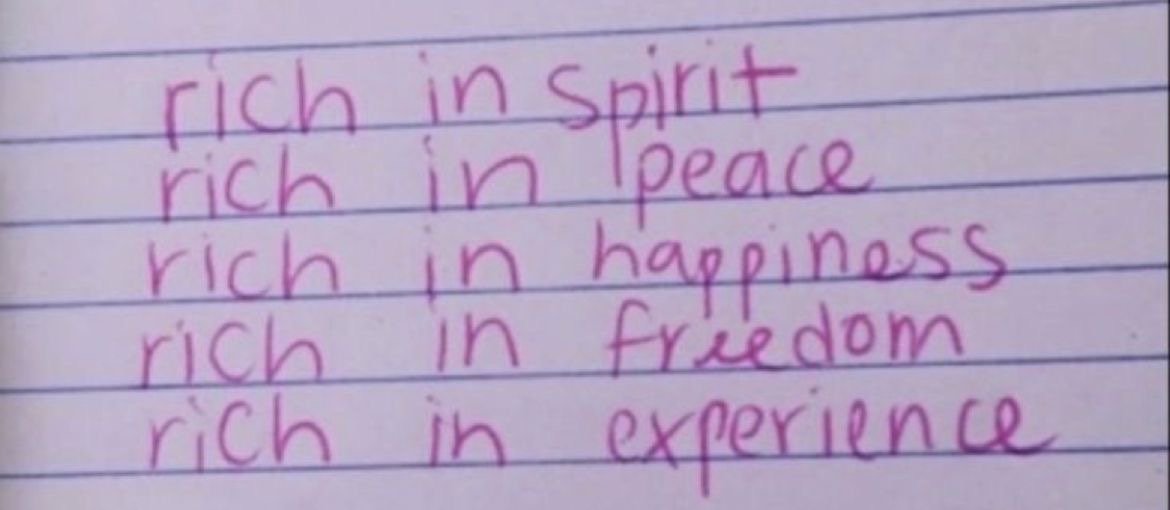 rich in spirit
rich in peace
rich in happiness
rich in freedom
rich in experience